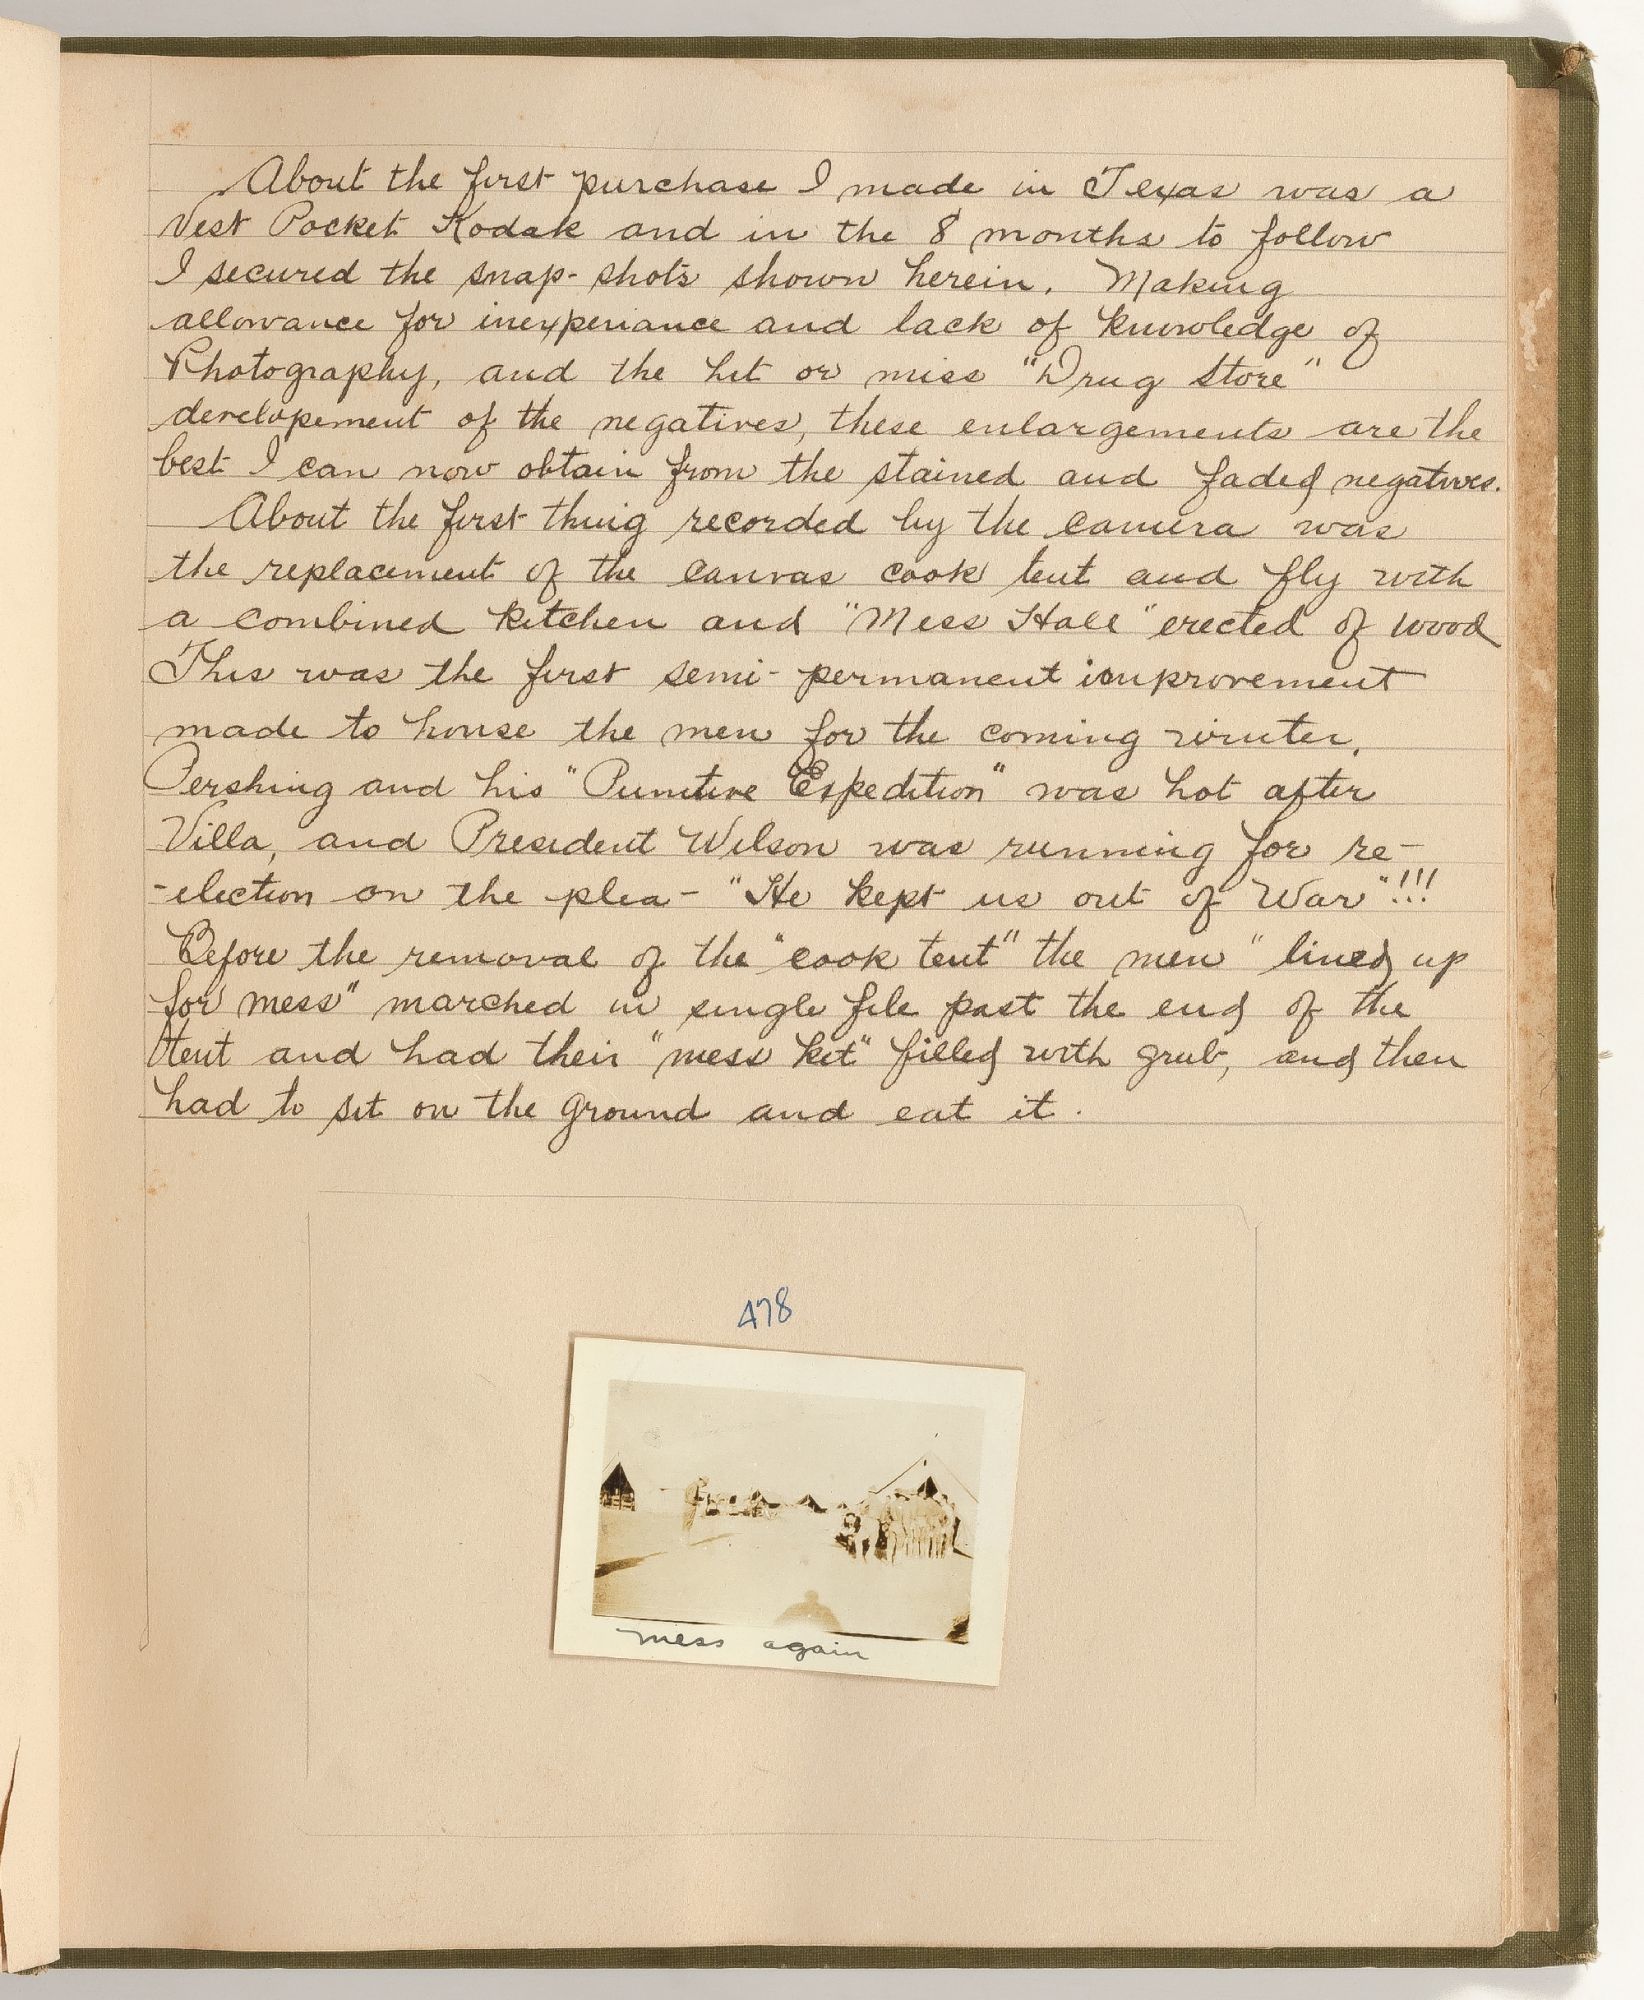 About the first purchase I made in Texas was a
Vest Pocket Kodak and in the 8 months to follow
I secured the snap-shots shown herein. Making
allowance for inexperiance and lack of knowledge of
Photography, and the hit or miss "Drug Store"
developement of the negatives, these enlargements are the
best I can now obtain from the stained and faded negatives.
About the first thing recorded by the camera was
the replacement of the canvas cook tent and fly with
a combined kitchen and "Mess Hall" erected of wood
This was the first semi-permanent improvement
made to house the men for the coming winter.
Pershing and his "Punitive Expedition" was hot after
Villa, and President Wilson was running for re-
-election on the plea - "He kept us out of War"!!!
Before the removal of the "cook tent" the men "lined up
for mess" marched in single file past the end of the
tent and had their "mess kit" filled with grub, and then
had to sit on the ground and eat it.
478
mess again